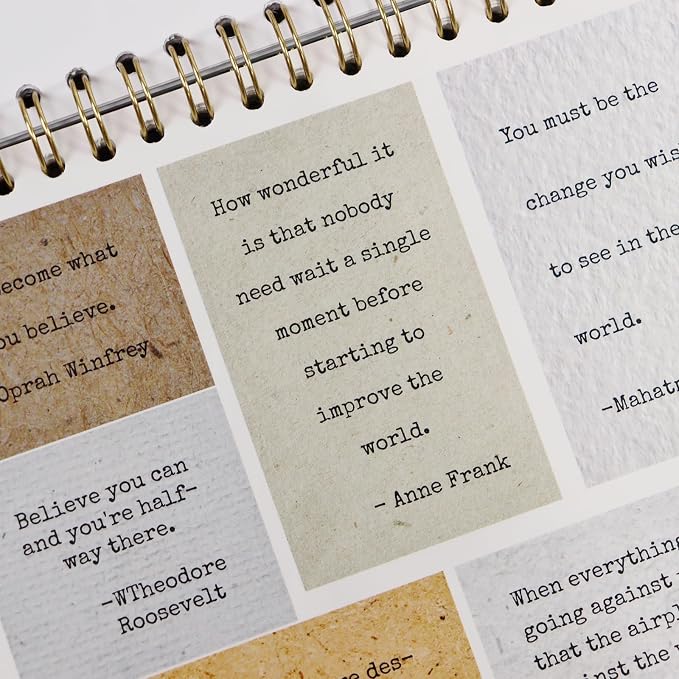 ecome what
ou believe.
Oprah Winfrey
How wonderful it
is that nobody
need wait a single
moment before
starting to
improve the
world.
- Anne Frank
You must be the
change you wis
to see in the
world.
-Mahatm
Believe you can
and you're half-
way there.
-WTheodore
Roosevelt
re des-
When everything
going against
that the airpl
inst the